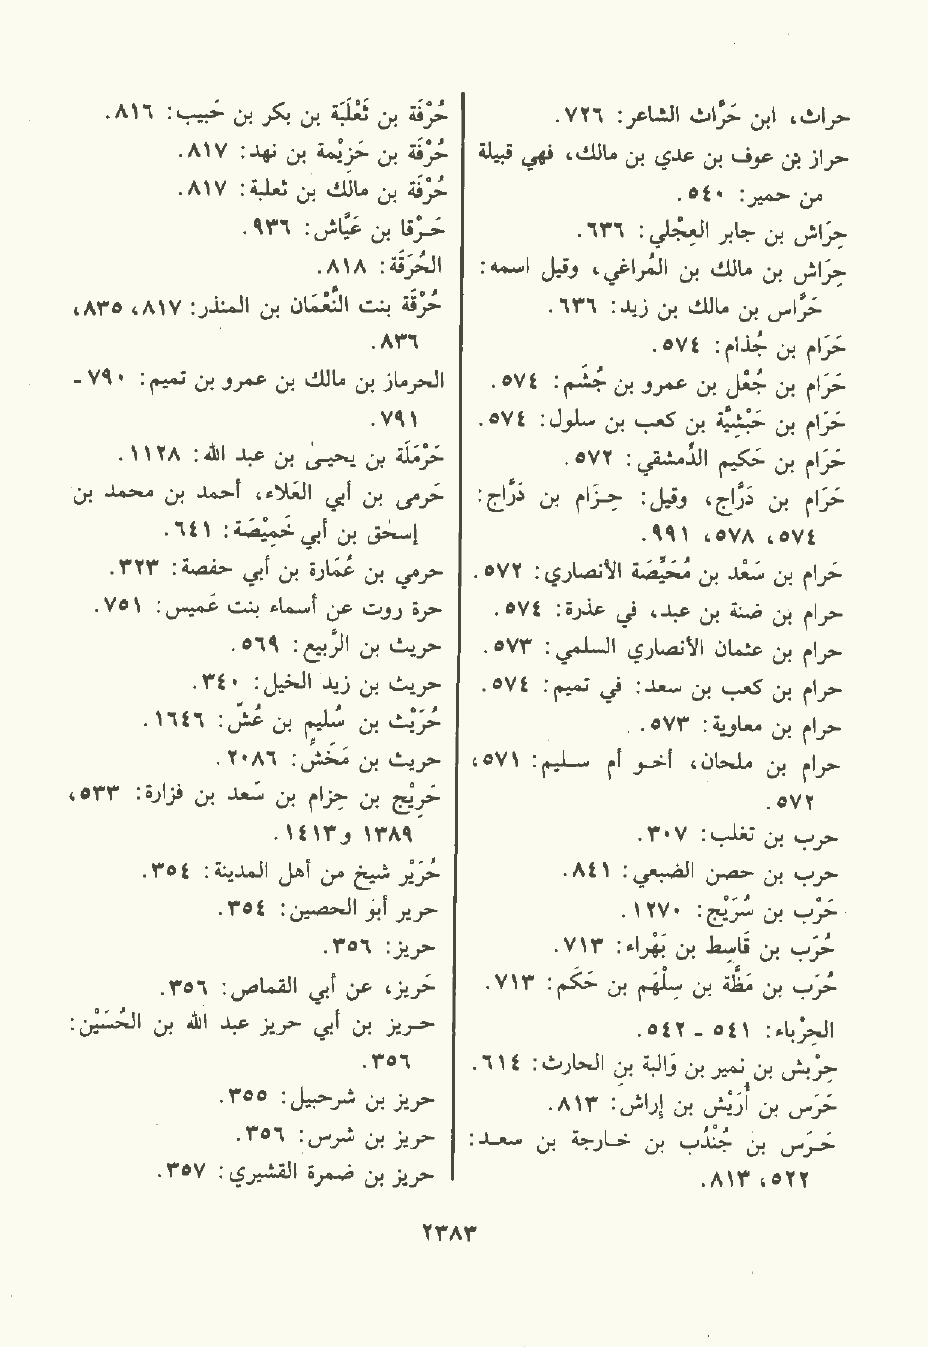 حراث، ابن حَرَّاث الشاعر: ٧٢٦.
حراز بن عوف بن عدي بن مالك، فهي قبيلة
من حمير: ٥٤٠.
حِرَاش بن جابر العِجْلي: ٦٣٦.
حِرَاش بن مالك بن المُراغي، وقيل اسمه:
حَرَّاس بن مالك بن زيد: ٦٣٦.
حَرَام بن جُذام: ٥٧٤.
حَرَام بن جُعْل بن عمرو بن جُشَم: ٥٧٤.
حَرَام بن حَبْشِيَّة بن كعب بن سلول: ٥٧٤.
حَرَام بن حَكيم الدِّمشقي: ٥٧٢.
حَرَام بن دَرَّاج، وقيل: حِزَام بن دَرَّاج:
٥٧٤، ٥٧٨، ٩٩١.
حرام بن سَعْد بن مُحَيِّصَة الأنصاري: ٥٧٢.
حرام بن ضنة بن عبد، في عذرة: ٥٧٤.
حرام بن عثمان الأنصاري السلمي: ٥٧٣.
حرام بن كعب بن سعد: في تميم: ٥٧٤.
حرام بن معاوية: ٥٧٣.
حرام بن ملحان، أخو أم سليم: ٥٧١،
٥٧٢.
حرب بن تغلب: ٣٠٧.
حرب بن حصن الضبعي: ٨٤١.
حَرْب بن سُرَيْج: ١٢٧٠.
حُرَب بن قَاسِط بن بَهْراء: ٧١٣.
حُرَب بن مَظَّة بن سِلْهَم بن حَكَم: ٧١٣.
الحِرْباء: ٥٤١ - ٥٤٢.
حِرْبش بن نمير بن وَالبة بن الحارث: ٦١٤.
حَرَس بن أُرَيْش بن إراش: ٨١٣.
حَرَس بن جُنْدُب بن خارجة بن سعد:
٥٢٢، ٨١٣.
حُرْفَة بن ثَعْلَبَة بن بكر بن حَبيب: ٨١٦.
حُرْفَة بن حَزِيْمة بن نهد: ٨١٧.
حُرْفَة بن مالك بن ثعلبة: ٨١٧.
حَرْقا بن عَيَّاش: ٩٣٦.
الحُرَقَة: ٨١٨.
حُرْقَة بنت النُّعْمَان بن المنذر: ٨١٧، ٨٣٥،
٨٣٦.
الحرماز بن مالك بن عمرو بن تميم: ٧٩٠-
٧٩١.
حَرْمَلَة بن يحيىٰ بن عبد الله: ١١٢٨.
حَرَمى بن أبي العَلاء، أحمد بن محمد بن
إسحٰق أبي خَمِيْصَة: ٦٤١.
حرمي بن عُمَارة بن أبي حفصة: ٣٢٣.
حرة روت عن أسماء بنت عَميس: ٧٥١.
حريث بن الرَّبيع: ٥٦٩.
حريث بن زيد الخيل: ٣٤٠.
حُرَيْث بن سُليم بن عُشّ: ١٦٤٦.
حريث بن مَخَشّ: ٢٠٨٦.
حَرِيْج بن حِزام بن سَعد بن فزارة: ٥٣٣،
١٣٨٩ و١٤١٣.
حُرَيْر شيخ من أهل المدينة: ٣٥٤.
حرير أبو الحصين: ٣٥٤.
حريز: ٣٥٦.
حَريز، عن أبي القماص: ٣٥٦.
حريز بن أبي حريز عبد الله بن الحُسَيْن:
٣٥٦.
حريز بن شرحبيل: ٣٥٥.
حريز بن شرس: ٣٥٦.
حريز بن ضمرة القشيري: ٣٥٧.
٢٣٨٣